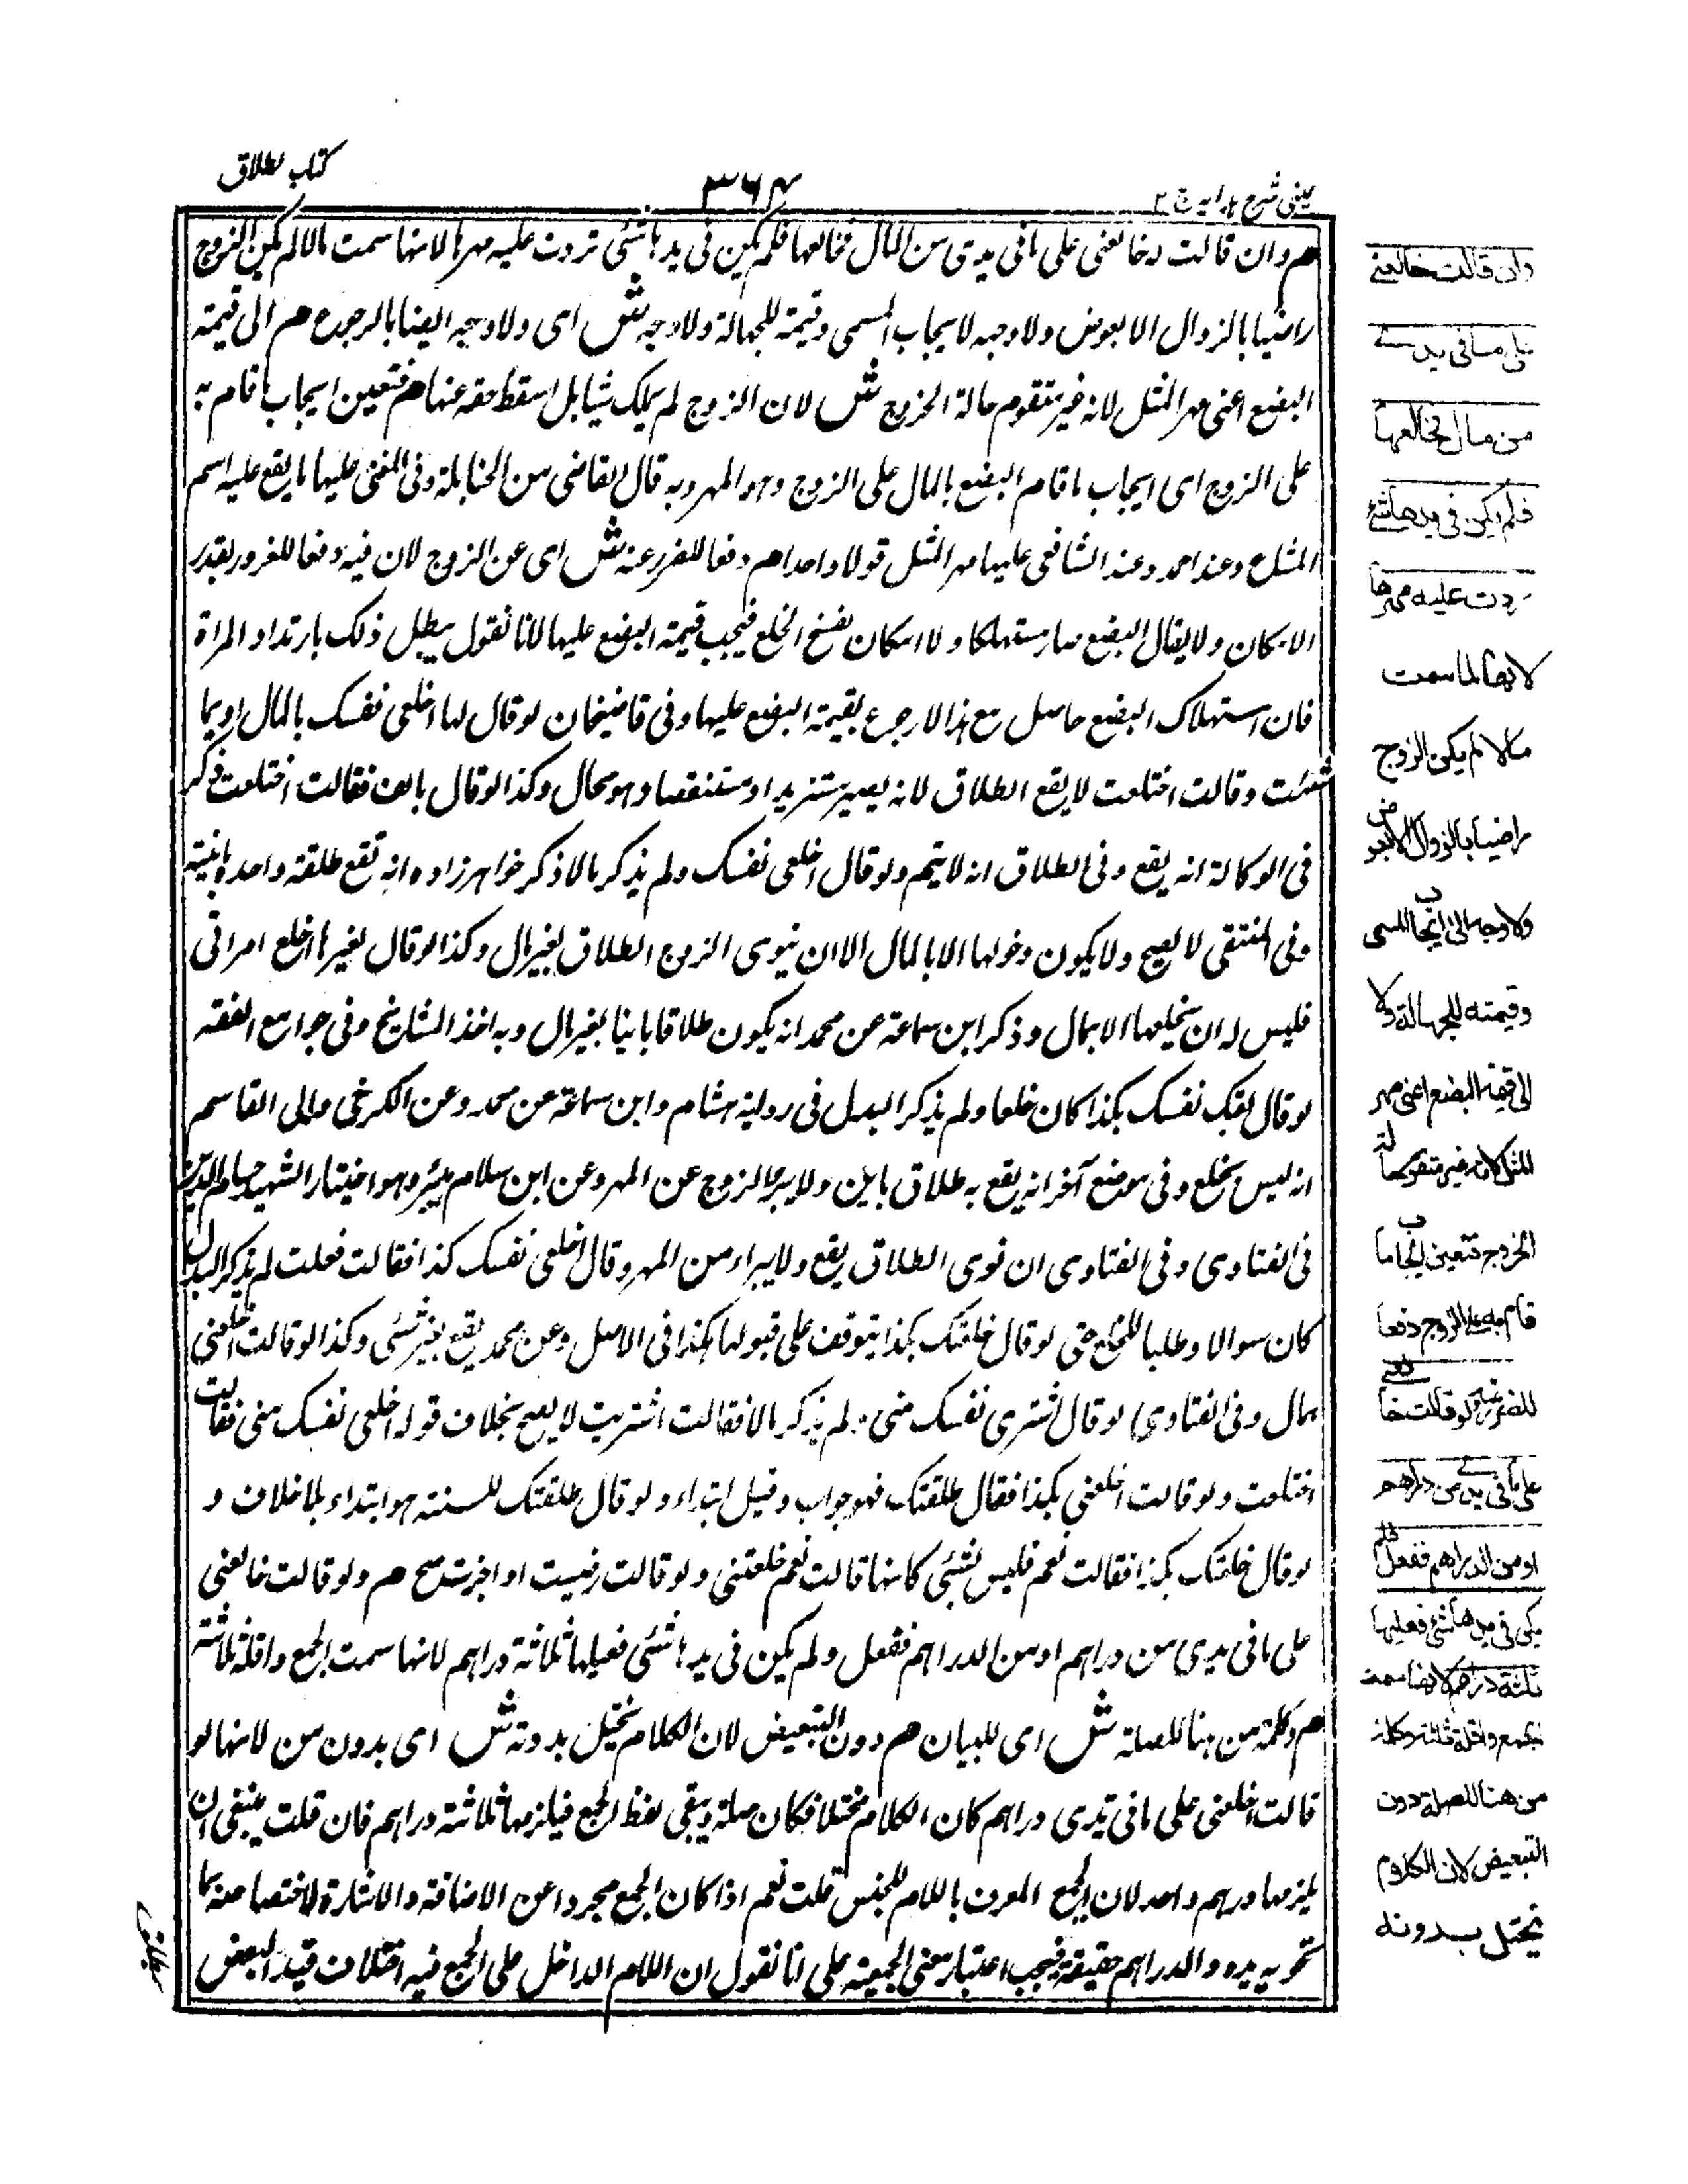 كتاب الطلاق
٣٦٤
عینی شرح هدایه ج ٢
هم وان قالت له خالعنی علی ما فی یدی من المال فخالعها فلم یکن فی یدها شئی تردت علیه مهرها لانها سمت مالا لم یکن الزوج
راضیا بالزوال الا بعوض ولا وجه لایجاب المسمی وقیمته للجهالة ولا وجه ش ای ولا وجه ایضا بالرجوع هم الی قیمة
البضع اعنی مهر المثل لانه غیر متقوم حالة الخروج ش لان الزوج لم یملک شیا بل اسقط حقه عنها هم فتعین ایجاب ما قام به
علی الزوج ای ایجاب ما قام البضع بالمال علی الزوج وهو المهر وبه قال القاضی من الحنابلة وفی المغنی علیها ما یقع علیه اسم
المتاع وعند احمد وعند الشافعی علیها مهر المثل قولا واحدا هم دفعا للضرر عنه ش ای عن الزوج لان فیه دفعا للغرور بقدر
الامکان ولا یقال البضع صار مستهلکا ولا امکان بفسخ الخلع فیجب قیمة البضع علیها لانا نقول یبطل ذلک بارتداد المراة
فان استهلاک البضع حاصل مع هذا لا رجوع بقیمة البضع علیها وفی قاضیخان لو قال لها اخلعی نفسک بالمال او بما
شئت وقالت اختلعت لا یقع الطلاق لانه یصیر مستزیدا ومستنقصا وهو محال وکذا لو قال بالف فقالت اختلعت ذکر
فی الوکالة انه یقع وفی الطلاق انه لا یتم ولو قال اخلعی نفسک ولم یذکر مالا ذکر خواهرزاده انه تقع طلقة واحدة بائنة
وفی المنتقی لا یصح ولا یکون دخولها الا بالمال الا ان ینوی الزوج الطلاق بغیر مال وکذا لو قال لغیرها اخلع امراتی
فلیس له ان یخلعها الا بمال وذکر ابن سماعة عن محمد انه یکون طلاقا باینا بغیر مال وبه اخذ المشایخ وفی جوامع الفقه
لو قال بعتک نفسک بکذا کان خلعا ولم یذکر البدل فی روایة هشام وابن سماعة عن محمد وعن الکرخی وابی القاسم
انه لیس بخلع وفی موضع آخر انه یقع به طلاق باین ولا یبرا الزوج عن المهر وعن ابن سلام یبرا وهو اختیار الشهید حسام الدین
فی الفتاوی وفی الفتاوی ان نوی الطلاق یقع ولا یبراء من المهر وقال اخلعی نفسک کذا فقالت فعلت لم یذکر البدل
کان سوالا وطلبا للخلع حتی لو قال خلعتک بکذا یتوقف علی قبولها هکذا فی الاصل وعن محمد یقع بغیر شئی وکذا لو قالت اخلعنی
بمال وفی الفتاوی لو قال اشتری نفسک منی ولم یذکر مالا فقالت اشتریت لا یصح بخلاف قوله اخلعی نفسک منی فقالت
اختلعت ولو قالت اخلعنی بکذا فقال طلقتک فهو جواب وقیل ابتداء ولو قال طلقتک للسنة هو ابتداء بلا خلاف و
لو قال خلعتک بکذا فقالت نعم فلیس بشئی کانها قالت نعم خلعتنی ولو قالت رضیت او اجزت صح هم ولو قالت خالعنی
علی ما فی یدی من دراهم او من الدراهم ففعل ولم یکن فی یدها شئی فعلیها ثلاثة دراهم لانها سمت الجمع واقله ثلاثة
هم وکلمة من هنا للصلة ش ای للبیان هم دون التبعیض لان الکلام یختل بدونه ش ای بدون من لانها لو
قالت اخلعنی علی ما فی یدی دراهم کان الکلام مختلا فکان صلة ویبقی لفظ الجمع فیلزمها ثلاثة دراهم فان قلت ینبغی ان
یلزمها درهم واحد لان الجمع المعرف باللام للجنس قلت نعم اذا کان الجمع مجردا عن الاضافة والاشارة لاختصاصه بما
تحویه یده والدراهم حقیقة فیجب اعتبار معنی الجمعیة علی انا نقول ان اللام الداخل علی الجمع فیه اختلاف قید البعض
وان قالت خالعنی
علی ما فی یدی
من مال فخالعها
فلم یکن فی یدها شئ
ردت علیه مهرها
لانها لما سمت
مالا لم یکن الزوج
راضیا بالزوال الا بعوض
ولا وجه الی ایجاب المسمی
وقیمته للجهالة ولا
الی قیمة البضع اعنی مهر
المثل لانه غیر متقوم حالة
الخروج فتعین ایجاب ما
قام به علی الزوج دفعا
للضرر عنه ولو قالت خالعنی
علی ما فی یدی من دراهم
او من الدراهم ففعل فلم
یکن فی یدها شئ فعلیها
ثلثة دراهم لانها سمت
الجمع واقله ثلثة وکلمة
من هنا للصلة دون
التبعیض لان الکلام
یختل بدونه